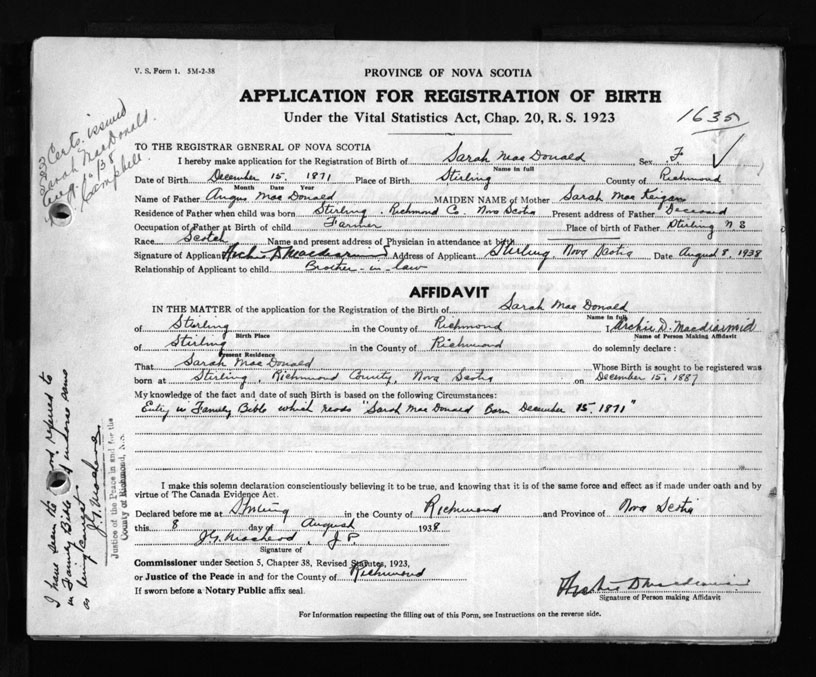 V. S. Form 1. 5M-2-38
PROVINCE OF NOVA SCOTIA
APPLICATION FOR REGISTRATION OF BIRTH
Under the Vital Statistics Act, Chap. 20, R. S. 1923
1635
Certs. issued
Sarah MacDonald.
Campbell
TO THE REGISTRAR GENERAL OF NOVA SCOTIA
I hereby make application for the Registration of Birth of Sarah MacDonald Sex F
Name in full
Date of Birth December 15, 1871 Place of Birth Stirling County of Richmond
Month Date Year
Name of Father Angus MacDonald MAIDEN NAME of Mother Sarah MacKeigan
Residence of Father when child was born Stirling, Richmond Co. Nova Scotia Present address of Father Deceased
Occupation of Father at Birth of child Farmer Place of birth of Father Stirling N S
Race Scotch Name and present address of Physician in attendance at birth
Signature of Applicant Archie D Macdiarmid Address of Applicant Stirling, Nova Scotia Date August 8, 1938
Relationship of Applicant to child Brother-in-law
AFFIDAVIT
IN THE MATTER of the application for the Registration of the Birth of Sarah MacDonald
Name in full
of Stirling in the County of Richmond I, Archie D. Macdiarmid
Birth Place Name of Person Making Affidavit
of Stirling in the County of Richmond do solemnly declare:
Present Residence
That Sarah MacDonald Whose Birth is sought to be registered was
born at Stirling, Richmond County, Nova Scotia on December 15, 1887
My knowledge of the fact and date of such Birth is based on the following Circumstances:
Entry in Family Bible which reads "Sarah MacDonald Born December 15, 1871"
I make this solemn declaration conscientiously believing it to be true, and knowing that it is of the same force and effect as if made under oath and by
virtue of The Canada Evidence Act.
Declared before me at Stirling in the County of Richmond and Province of Nova Scotia
this 8 day of August 1938
J.G. Macleod, J P.
Signature of
Commissioner under Section 5, Chapter 38, Revised Statutes, 1923,
or Justice of the Peace in and for the County of Richmond
If sworn before a Notary Public affix seal.
Archie D Macdiarmid
Signature of Person making Affidavit
For Information respecting the filling out of this Form, see Instructions on the reverse side.
I have seen the record referred to
in Family Bible and
as being correct
J G Macleod
Justice of the Peace in and for the
County of Richmond, N.S.